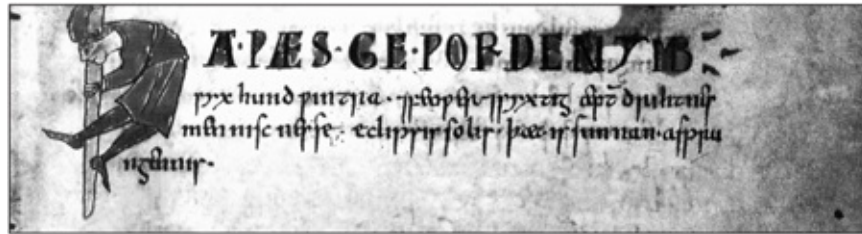 A·ǷÆS·GE·ǷORDEN YMB
syx hund ƿintra · ⁊ feoƿer ⁊ syxtig æft̄ drihtnes
menniscnesse · eclipsis solis · þæt is sunnan · aspru
ngennis ·